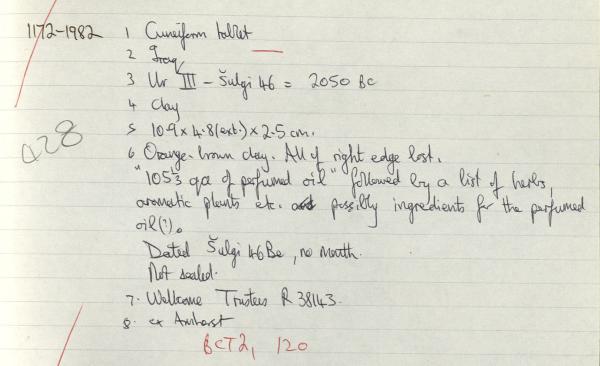 1172-1982 1 Cuneiform tablet
2 Iraq
3 Ur III - Šulgi 46 = 2050 BC
4 Clay
5 10.9 x 4.8 (ext.) x 2.5 cm.
928
6 Orange-brown clay. All of right edge lost.
"105⅓ qa of perfumed oil" followed by a list of herbs,
aromatic plants etc. possibly ingredients for the perfumed
oil(?).
Dated Šulgi 46 Be, no month.
Not sealed.
7. Wellcome Trustees R 38143.
8. ex Amherst
BCT2, 120